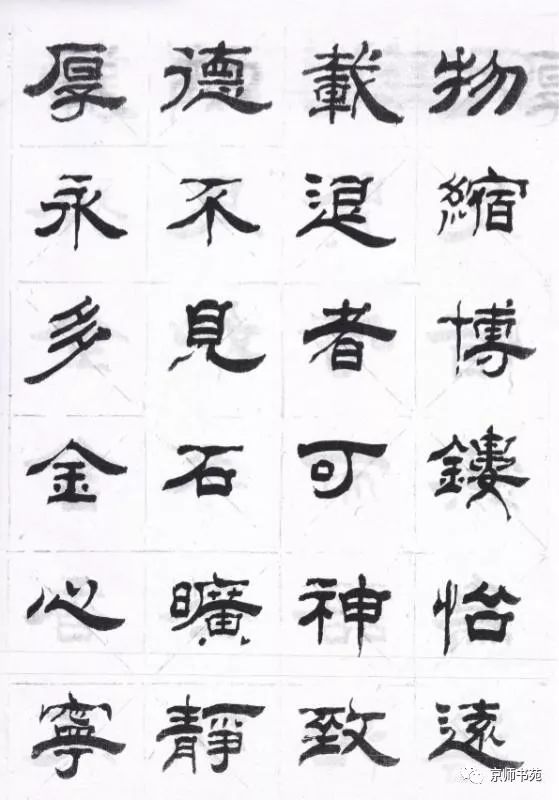 厚德載物
永不退縮
多見者博
金石可鏤
心曠神怡
寧靜致遠
京师书苑